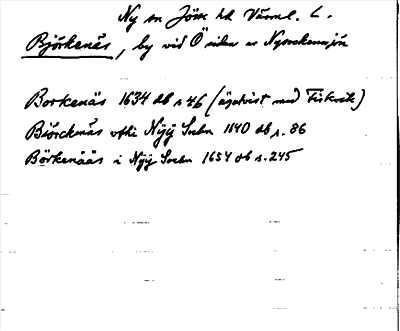 Ny sn Jösse hd Värml. L.
Björkenäs, by vid Ö sidan av Nysockensjön
Borkenäs 1634 Jb s 46 (ägotvist med Fiskvik)
Biörcknäs uthi Nÿÿ Sochn 1640 Jb s. 86
Börkenääs i Nÿÿ Sochn 1654 Jb s. 245